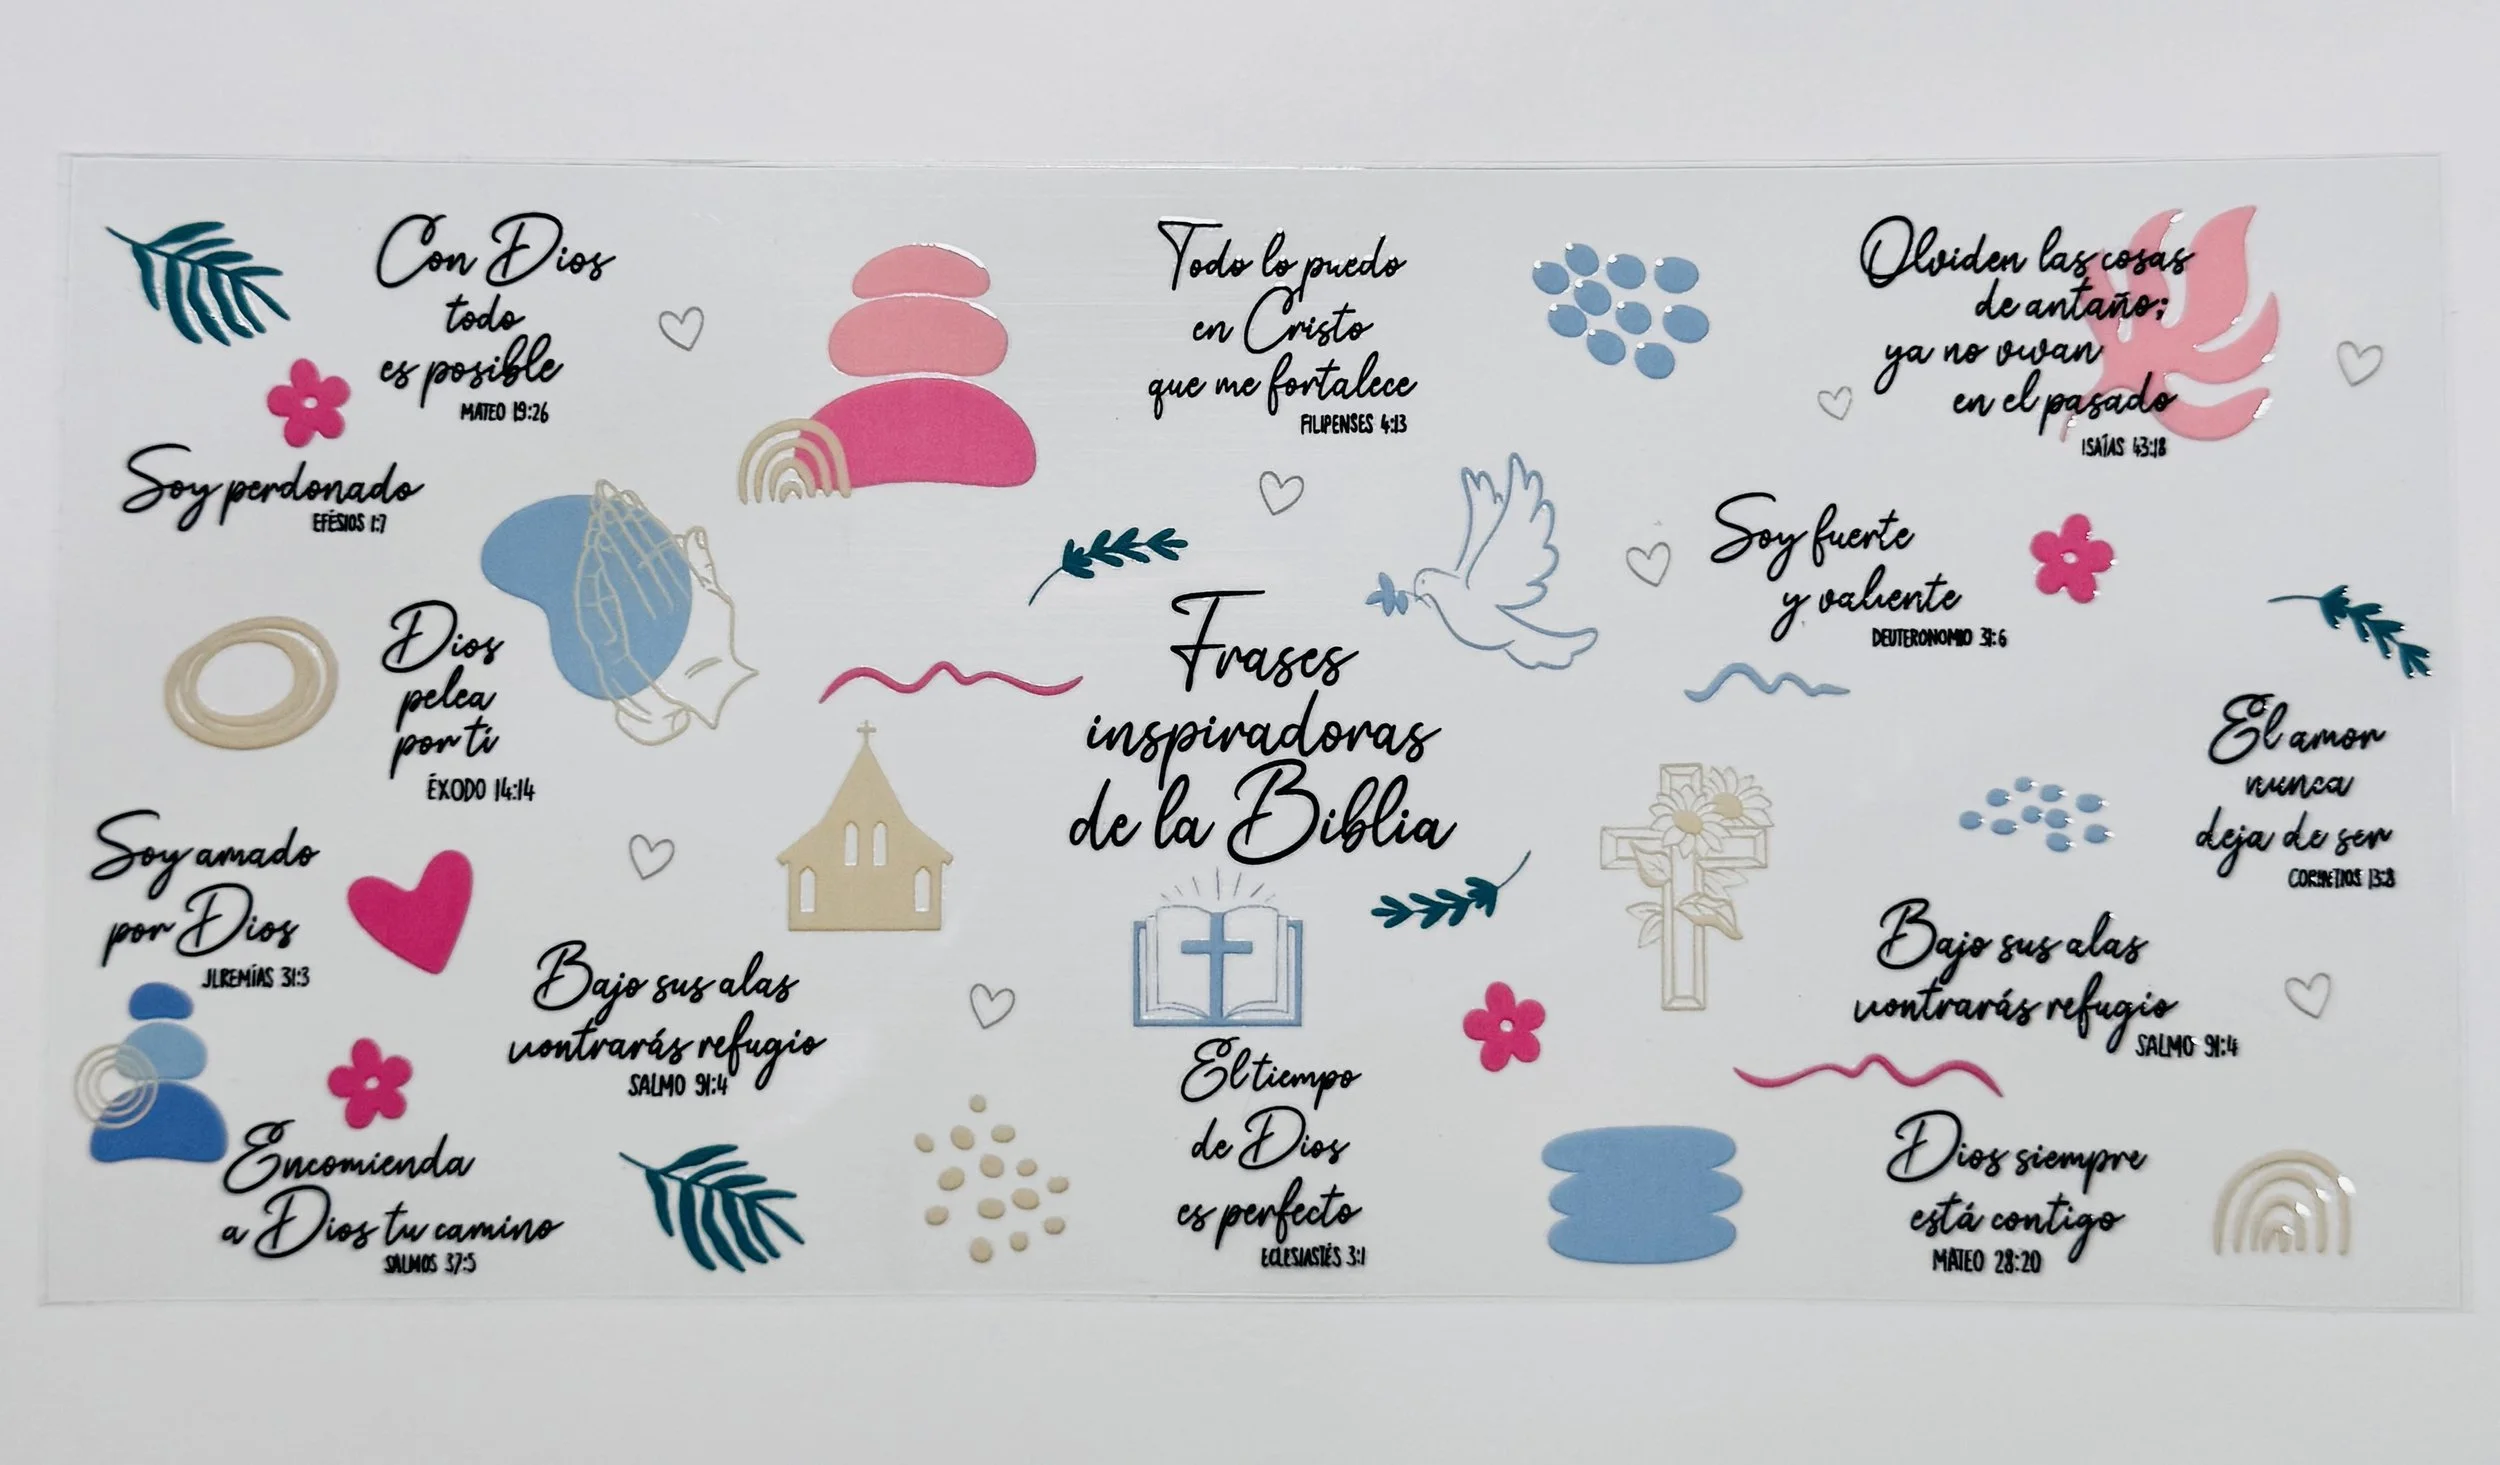 Con Dios
todo
es posible
MATEO 19:26
Todo lo puedo
en Cristo
que me fortalece
FILIPENSES 4:13
Olviden las cosas
de antaño;
ya no vivan
en el pasado
ISAÍAS 43:18
Soy perdonado
EFÉSIOS 1:7
Soy fuerte
y valiente
DEUTERONOMIO 31:6
Dios
pelea
por ti
ÉXODO 14:14
Frases
inspiradoras
de la Biblia
El amor
nunca
deja de ser
CORINTIOS 13:8
Soy amado
por Dios
JEREMÍAS 31:3
Bajo sus alas
refugio
SALMO 91:4
Bajo sus alas
refugio
SALMO 91:4
El tiempo
de Dios
es perfecto
ECLESIASTÉS 3:1
Encomienda
a Dios tu camino
SALMOS 37:5
Dios siempre
está contigo
MATEO 28:20